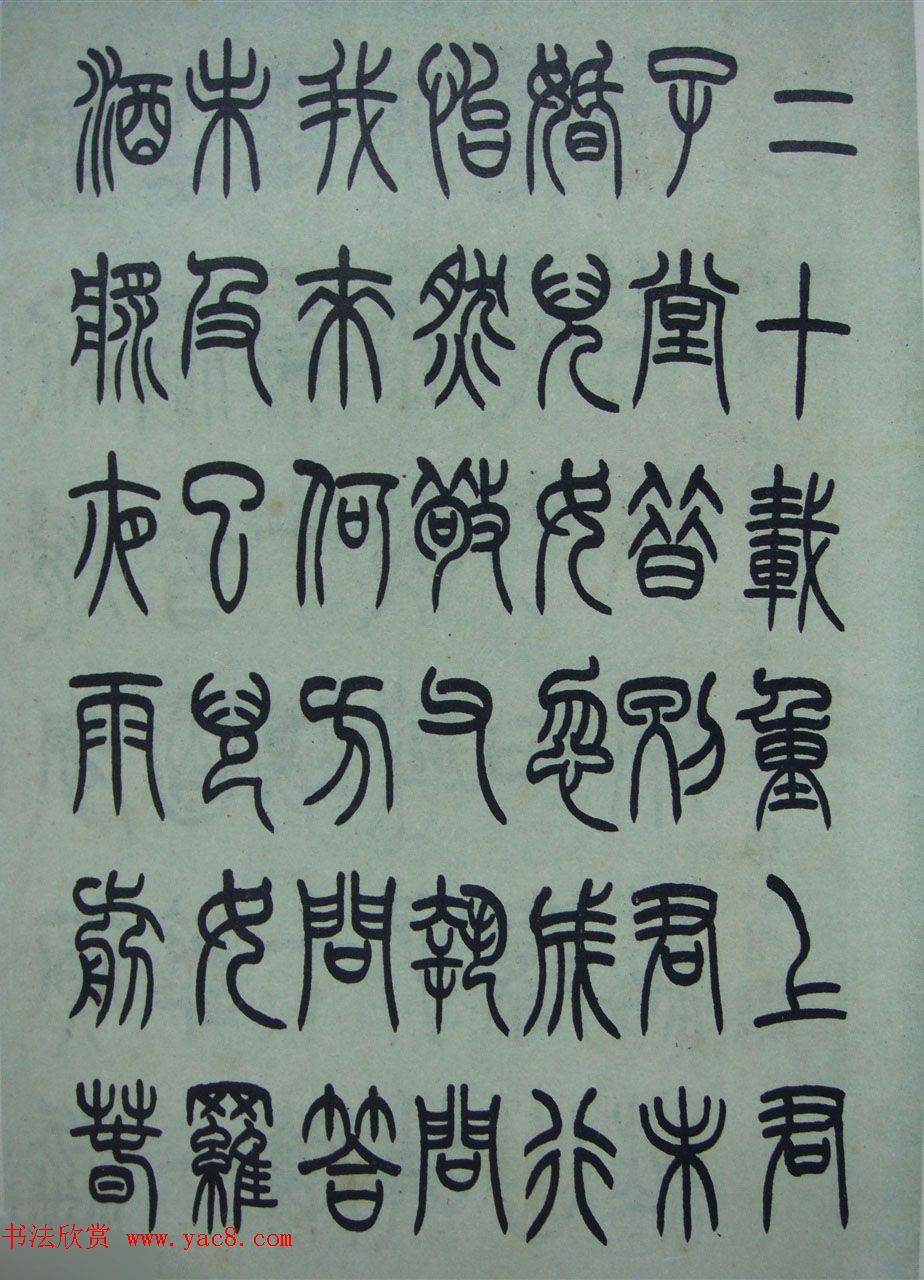 二十載重上君
子堂昔別君未
婚兒女忽成行
怡然敬父執問
我來何方問答
未及已兒女羅
酒漿夜雨剪春
书法欣赏 www.yac8.com